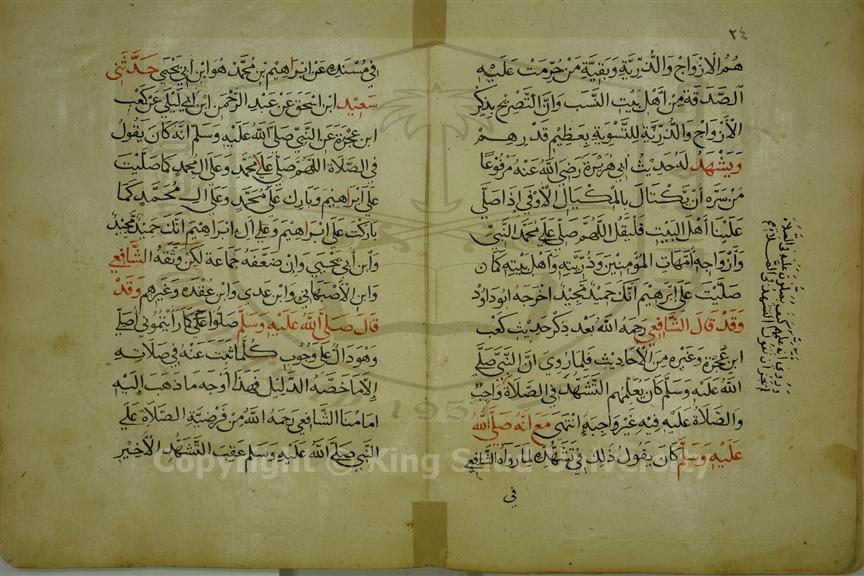 ٢٤
هم الازواج والذرية وبقية من حرمت عليه
الصدقة من اهل بيت النسب وان التصريح بذكر
الأزواج والذرية للتسوية بعظيم قدرهم
ويشهد له حديث ابي هريرة رضي الله عنه مرفوعا
من سره ان يكتال بالمكيال الاوفى اذا صلى
علينا أهل البيت فليقل اللهم صل على محمد النبي
وأزواجه أمهات المؤمنين وذريته واهل بيته كما
صليت على ابرهيم انك حميد مجيد اخرجه ابو داود
وقد قال الشافعي رحمه الله بعد ذكر حديث كعب
ابن عجرة وغيره من الأحاديث فلما روي ان النبي صلى
الله عليه وسلم كان يعلمهم التشهد في الصلاة
والصلاة عليه فيه غير واجبة انتهى مع أنه صلى الله
عليه وسلم كان يقول ذلك في تشهده لما رواه الشافعي
في
في مسنده عن ابراهيم بن محمد هو ابن ابي يحيى حدثني
سعيد ابن اسحق عن عبد الرحمن ابن ابي ليلى عن كعب
ابن عجرة عن النبي صلى الله عليه وسلم انه كان يقول
في الصلاة اللهم صل على محمد وعلى ال محمد كما صليت
على ابراهيم وبارك على محمد وعلى ال محمد كما
باركت على ابراهيم وعلى آل ابراهيم انك حميد مجيد
وابن أبي يحيى وان ضعفه جماعة لكن وثقه الشافعي
وابن الأصبهاني وابن عدي وابن عقده وغيرهم وقد
قال صلى الله عليه وسلم صلوا كما رأيتموني أصلي
وهو دال على وجوب كلما ثبت عنه في صلاته
إلا ما خصه الدليل فهذا أوجه ما ذهب إليه
امامنا الشافعي رحمه الله من فرضية الصلاة على
النبي صلى الله عليه وسلم عقب التشهد الأخير
Copyright © King Saud University
1957